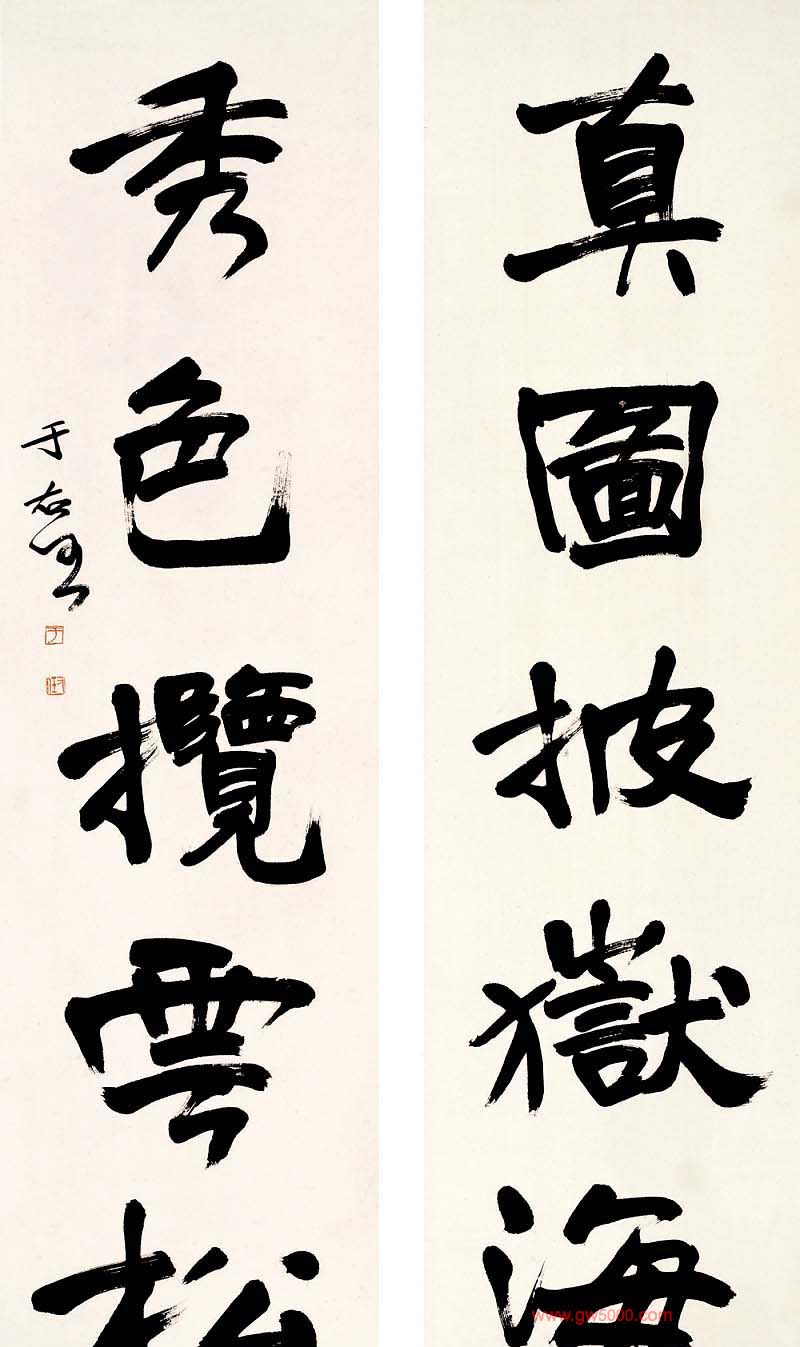 真圖披嶽海
秀色攬雲松
于右任
www.gw5000.com